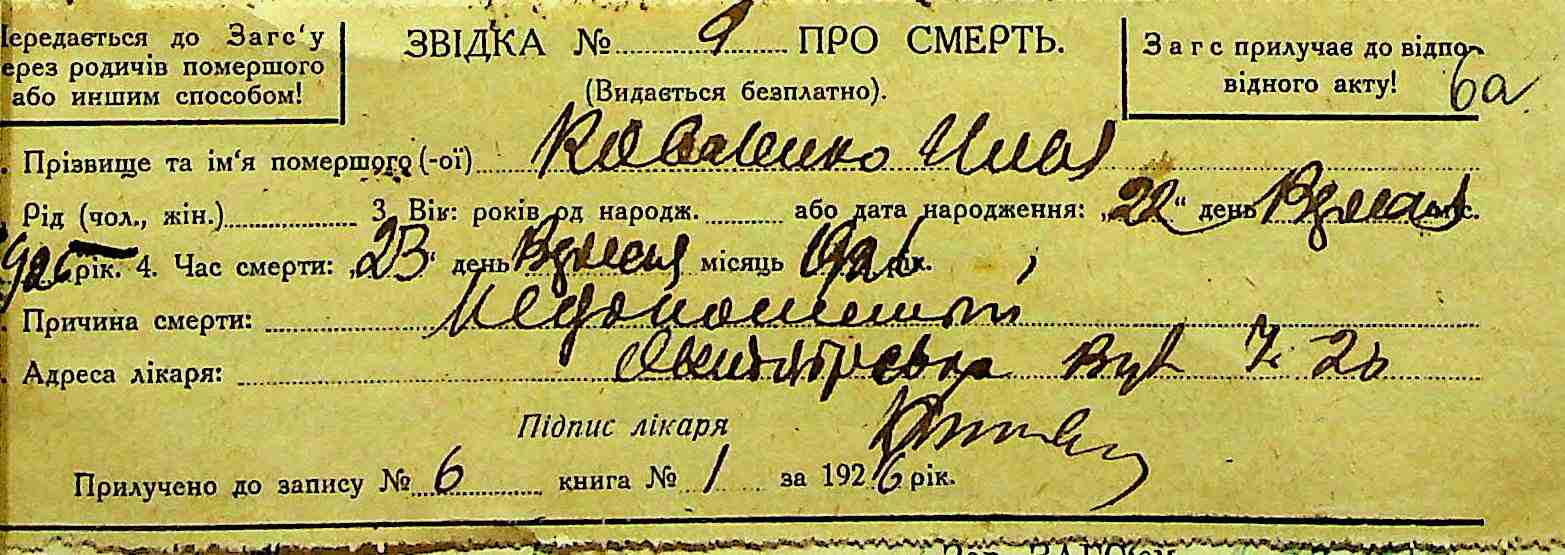 Передається до Загс'у
через родичів помершого
або иншим способом!
ЗВІДКА № 9 ПРО СМЕРТЬ.
(Видається безплатно).
Загс прилучає до відпо-
відного акту!
6а
Прізвище та ім'я помершого (-ої) Коваленко Илья
Рід (чол., жін.) 3. Вік: років од народж. або дата народження: „22“ день міс.
рік. 4. Час смерти: „23“ день місяць 1926 рік.
Причина смерти:
Адреса лікаря: вул 7 20
Підпис лікаря
Прилучено до запису № 6 книга № 1 за 1926 рік.